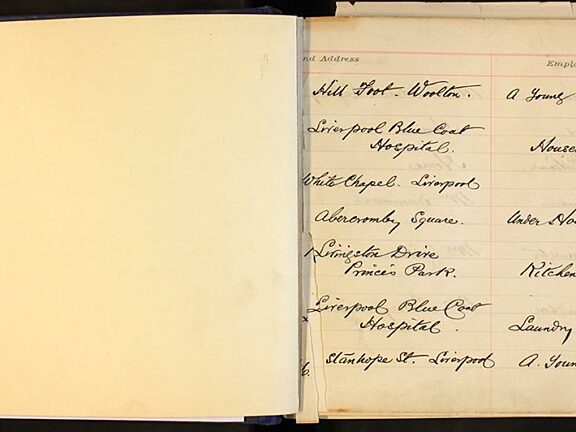 nd Address Emplo
Hill Foot. Woolton. A Young
Liverpool Blue Coat
Hospital. House
White Chapel. Liverpool
Abercromby Square. Under Ho
Livingston Drive
Princes Park. Kitchen
Liverpool Blue Coat
Hospital. Laundry
6. Stanhope St. Liverpool A. Youn